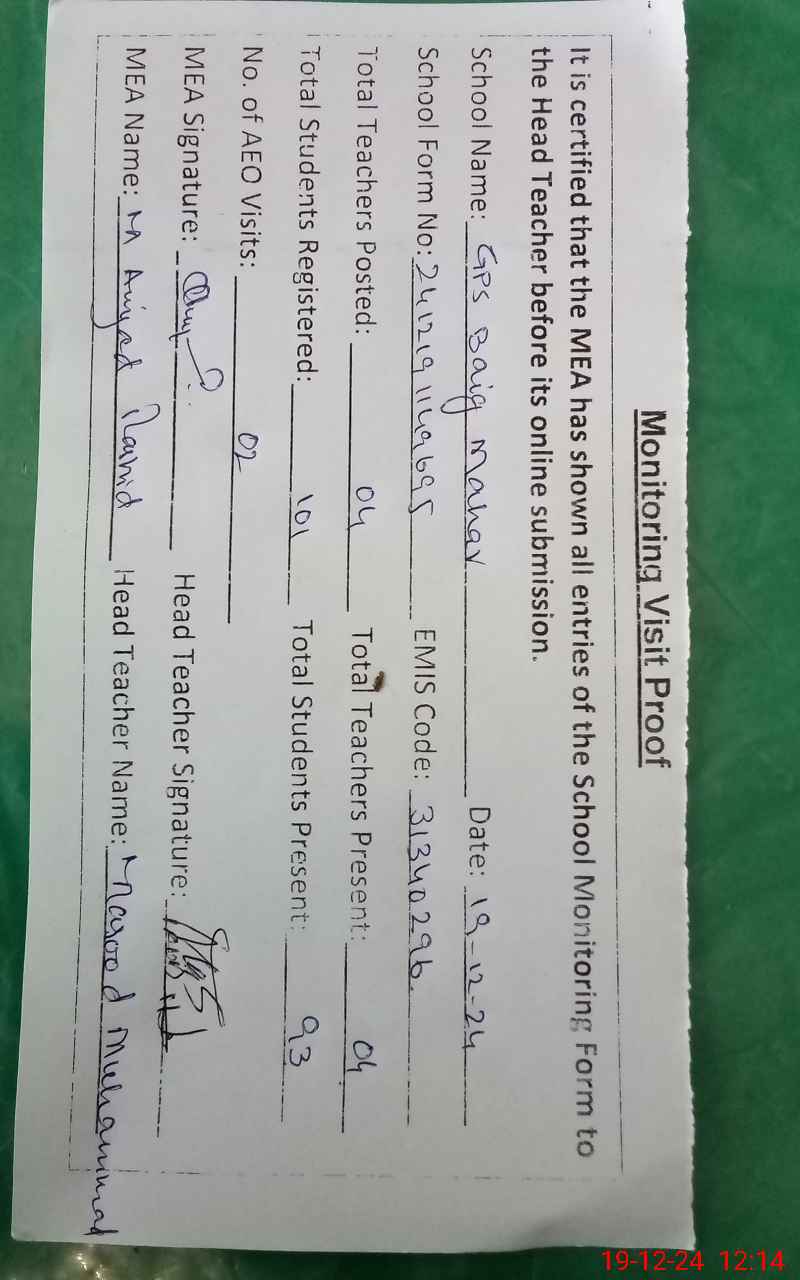 Monitoring Visit Proof
It is certified that the MEA has shown all entries of the School Monitoring Form to
the Head Teacher before its online submission.
School Name: GPS Baig Mahar Date: 19-12-24
School Form No: 241219149695 EMIS Code: 31340296
Total Teachers Posted: 04 Total Teachers Present: 04
Total Students Registered: 101 Total Students Present: 93
No. of AEO Visits: 02
MEA Signature: Head Teacher Signature:
MEA Name: M Amjad Rashid Head Teacher Name: Maqood Muhammad
19-12-24 12:14